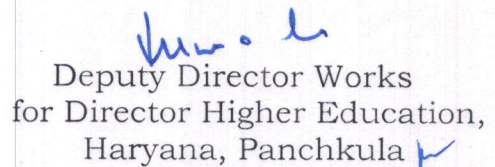 Deputy Director Works
for Director Higher Education,
Haryana, Panchkula